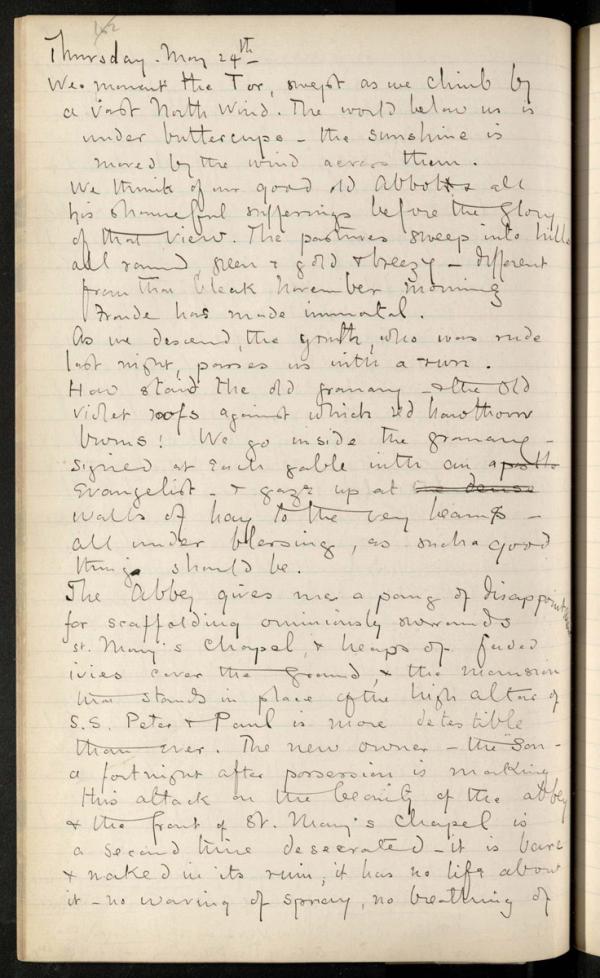 142
Thursday. May 24th
We mount the Tor, swept as we climb by
a vast North Wind. The world below us is
under buttercups – the sunshine is
moved by the wind across them.
We think of our good old Abbot & all
his shameful sufferings before the glory
of that view. The pastures sweep into hills
all round green & gold & breezy – different
from that bleak November morning
Froude has made immortal.
As we descend, the youth, who was rude
last night, passes us with a run.
How staid the old granary – & the old
violet roofs against which red hawthorn
burns! We go inside the granary –
signed at each gable with an
Evangelist – & gaze up at dense
walls of hay to the very beams –
all under blessing, as such a good
thing should be.
The Abbey gives me a pang of disappointment
for scaffolding ominously surrounds
St. Mary's Chapel, & heaps of faded
ivies cover the ground, & the mansion
that stands in place of the high altar of
S.S. Peter & Paul is more detestible
than ever. The new owner – the Son –
a fortnight after possession is making
this attack on the beauty of the abbey
& the front of St. Mary's Chapel is
a second time desecrated – it is bare
& naked in its ruin, it has no life about
it – no waving of spray, no breathing of